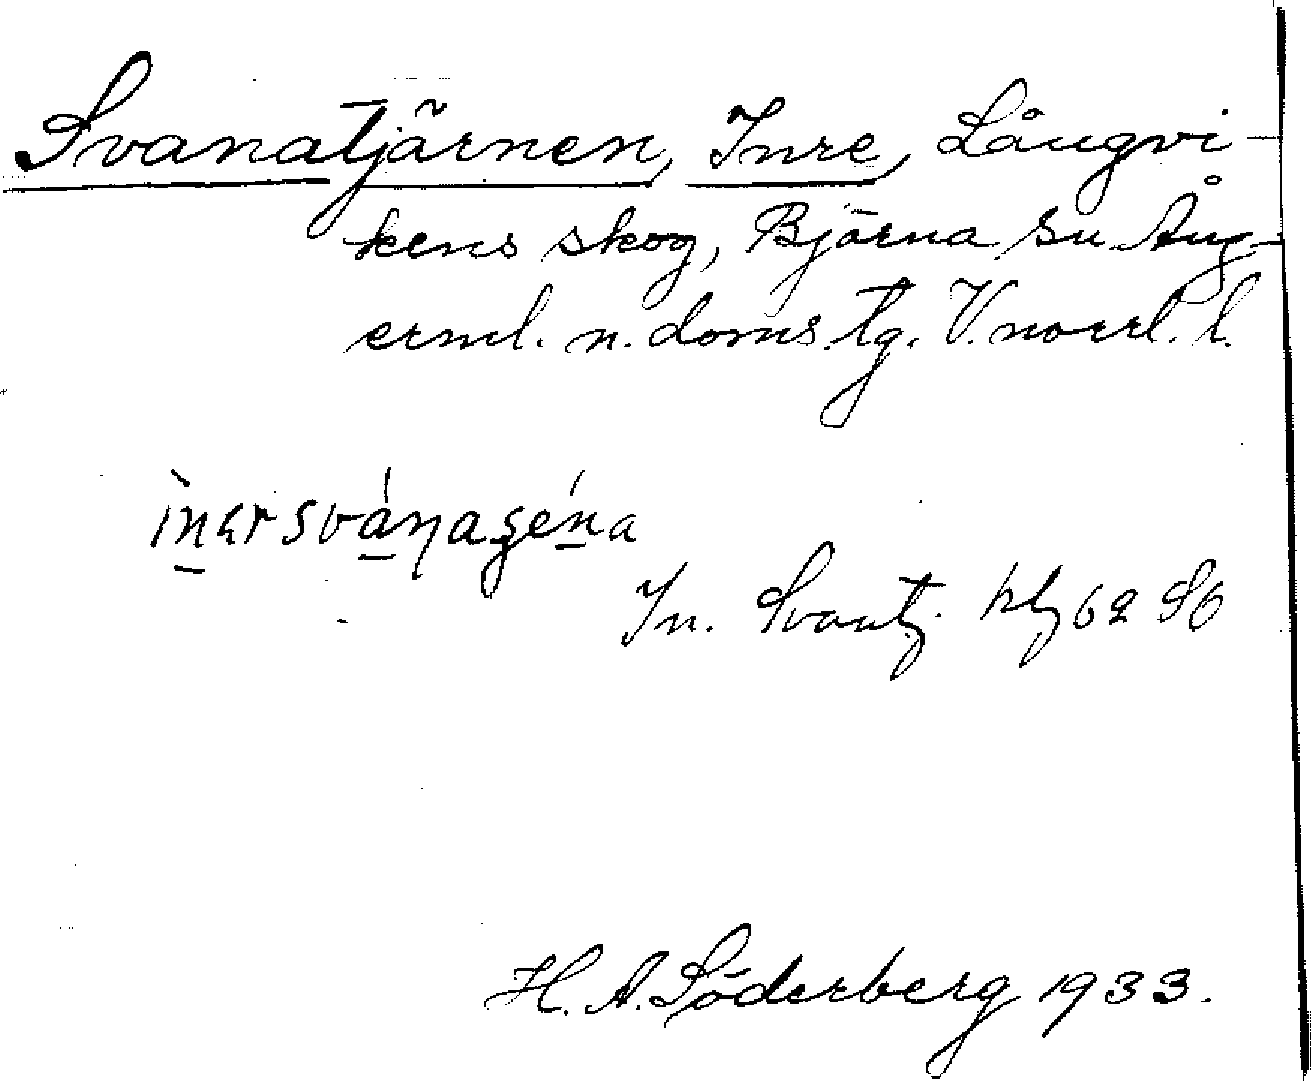 Svanatjärnen, Inre, Långvi-
kens skog, Björna sn Ång-
erml. n. doms. tg. V. norrl. l.
In. Svantj. hlz 62 S6
H. A. Söderberg 1933.